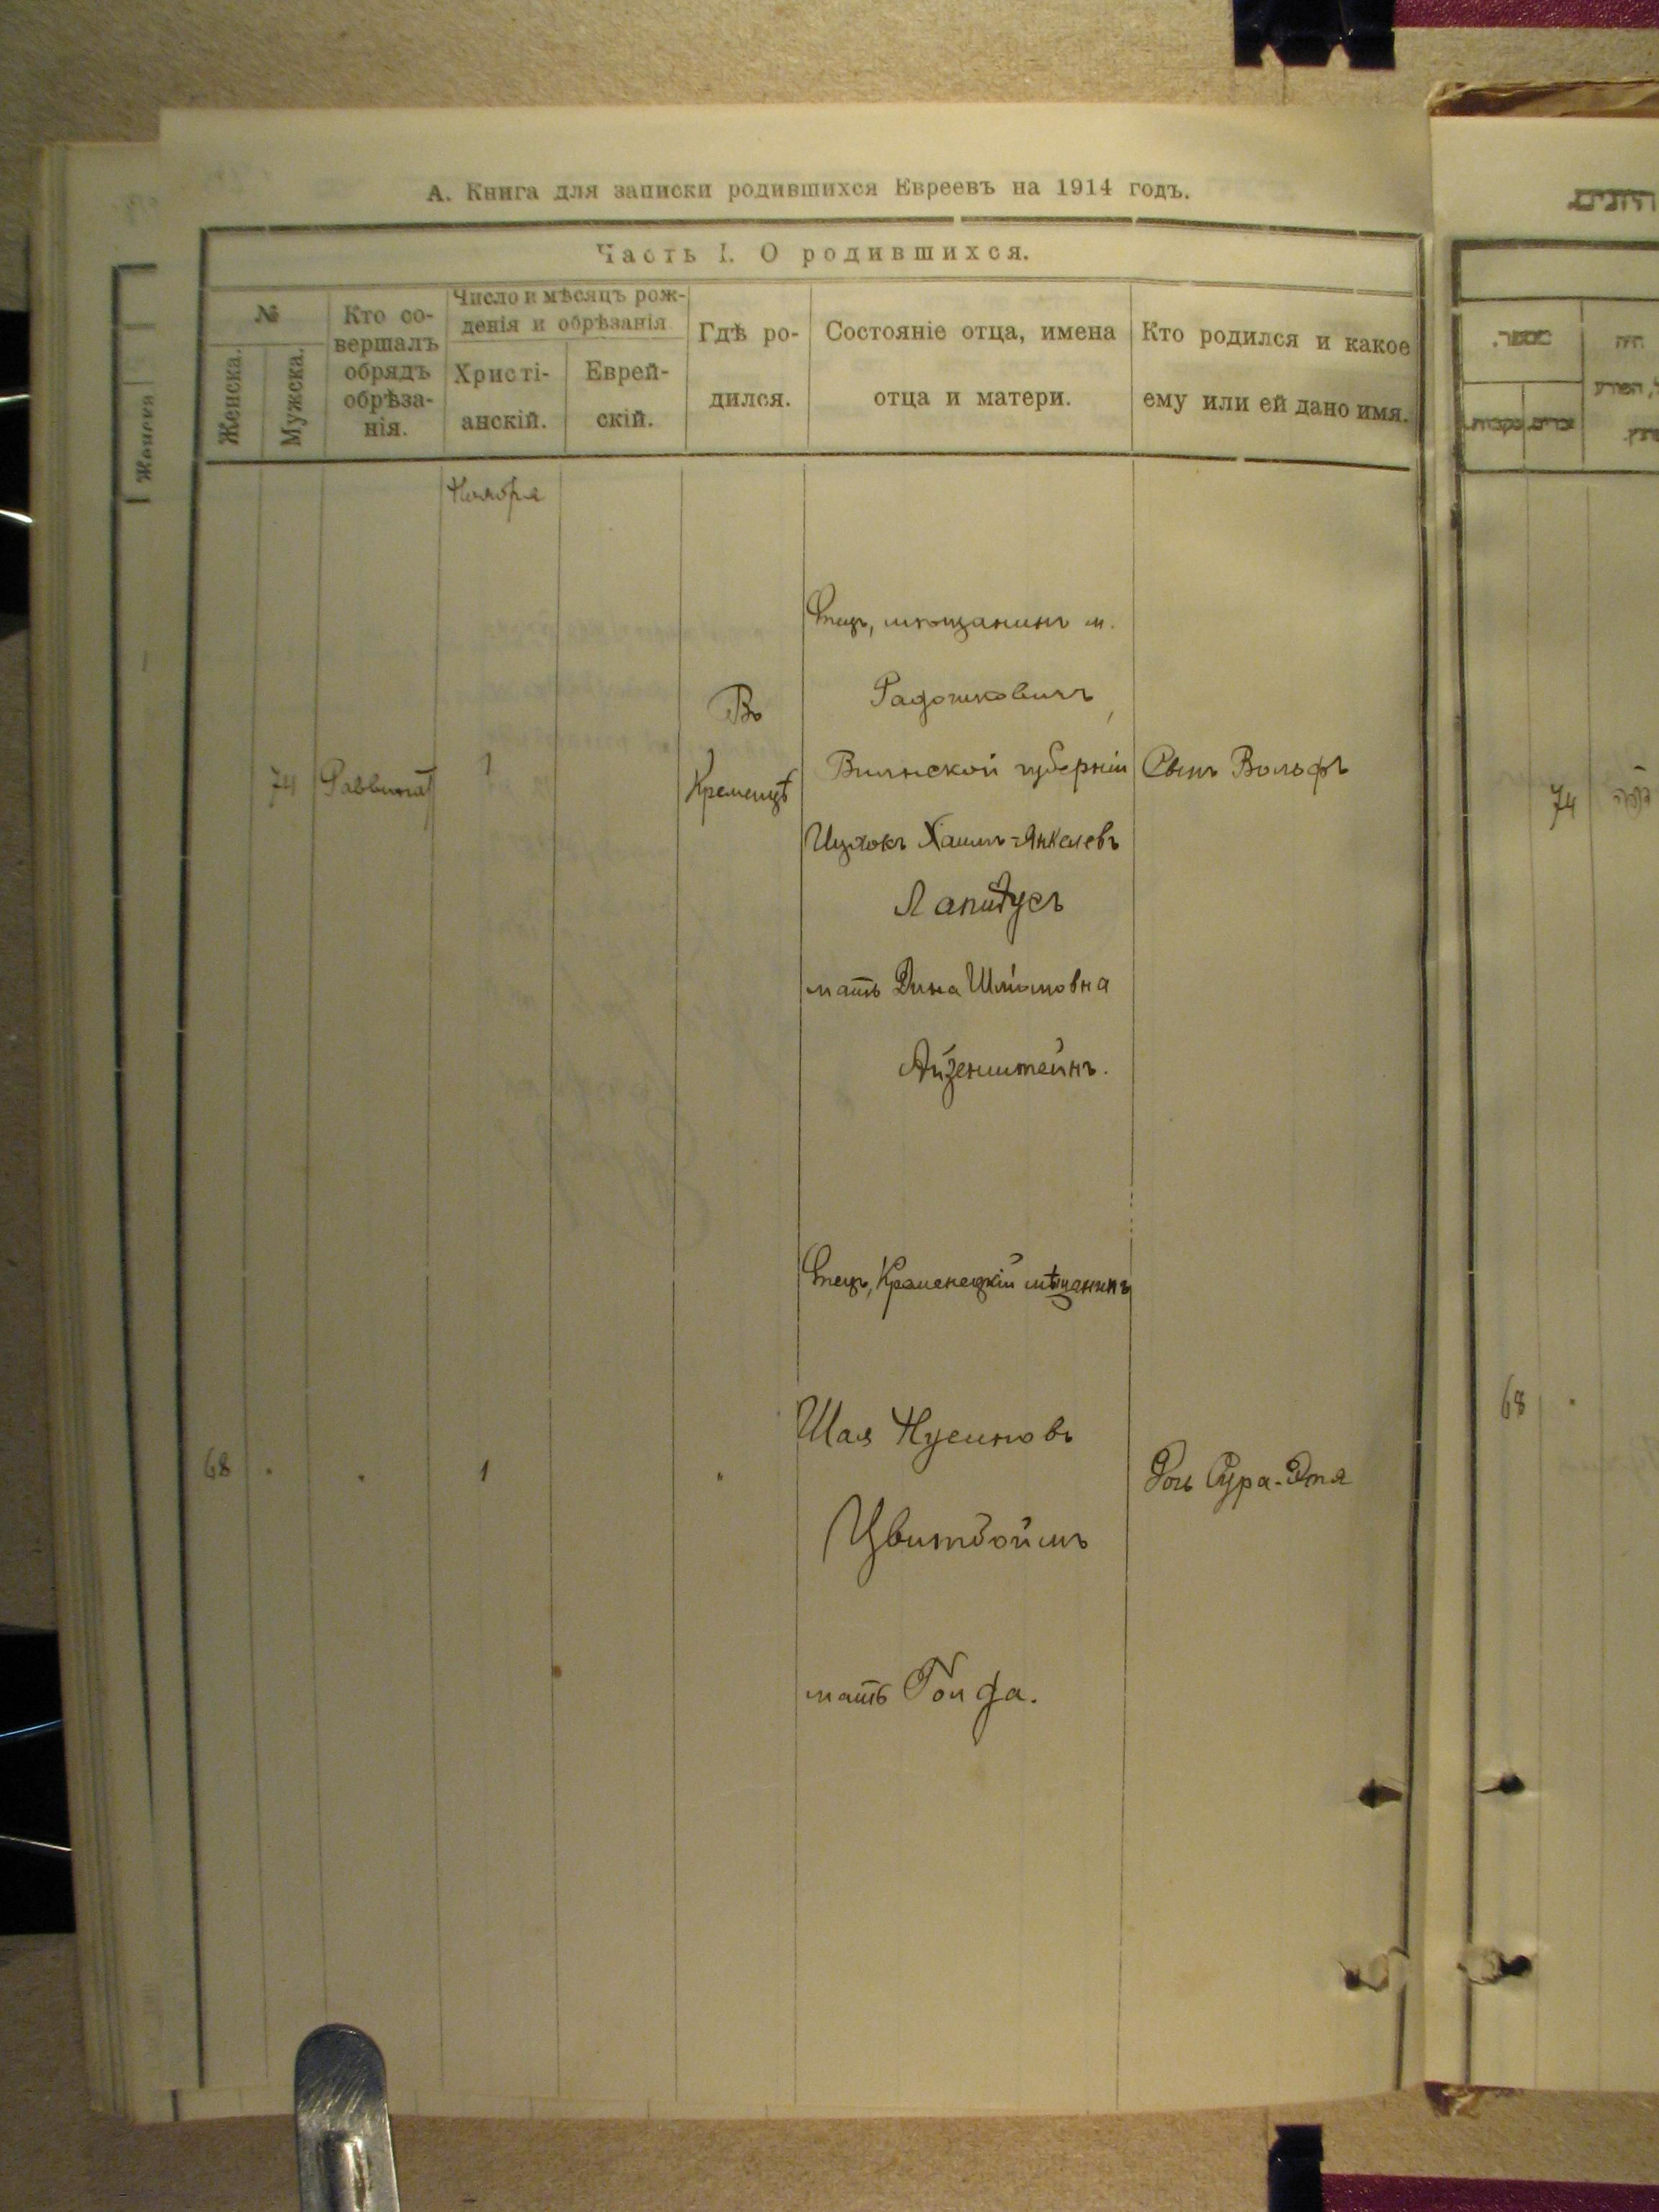 А. Книга для записки родившихся Евреевъ на 1914 годъ.
Часть I. О родившихся.
№
Женска.
Мужска.
Кто со-
вершалъ
обрядъ
обрѣза-
нія.
Число и мѣсяцъ рож-
денія и обрѣзанія
Христі-
анскій.
Еврей-
скій.
Гдѣ ро-
дился.
Состояніе отца, имена
отца и матери.
Кто родился и какое
ему или ей дано имя.
Женска
Ноября
74
Раввинат
1
Въ
Кременцѣ
Отецъ, мѣщанинъ м.
Радошковичъ,
Виленской губерніи
Ицхокъ Хаимъ-Янкелевъ
Лапидусъ
мать Дина Шлiомовна
Айзенштейнъ.
Сынъ Вольфъ
68
"
"
1
"
Отецъ, Кременецкій мѣщанинъ
Шая Нусиновъ
Цвитбоймъ
мать Гольда.
Дочь Сура-Этя
74
68